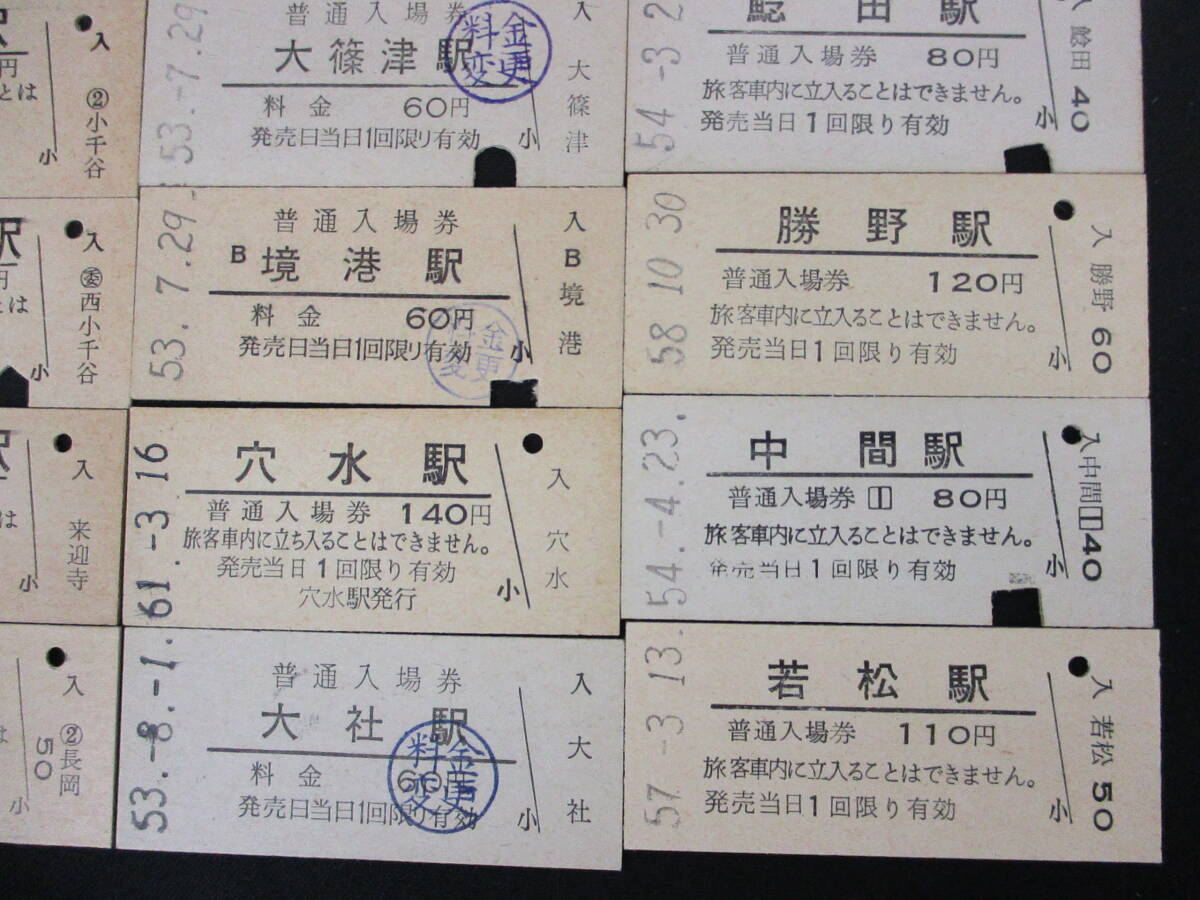 円
とは
小
入
②小千谷
駅
円
とは
小
入
㊙西小千谷
小
入
来迎寺
小
入
②長岡
50
53.-7.29
普通入場券
大篠津駅
料金 60円
発売日当日1回限り有効
料金変更
小
入
大篠津
53.7.29.
普通入場券
B 境港駅
料金 60円
発売日当日1回限り有効
金変更
小
入
B境港
61.-3.16
穴水駅
普通入場券 140円
旅客車内に立ち入ることはできません。
発売当日1回限り有効
穴水駅発行
小
入
穴水
53.-8.-1.
普通入場券
大社駅
料金 60円
発売日当日1回限り有効
料金変更
小
入
大社
54-3.2
鯰田駅
普通入場券 80円
旅客車内に立入ることはできません。
発売当日1回限り有効
小
入 鯰田 40
58.10.30
勝野駅
普通入場券 120円
旅客車内に立入ることはできません。
発売当日1回限り有効
小
入 勝野 60
54.-4.23.
中間駅
普通入場券 1 80円
旅客車内に立入ることはできません。
発売当日1回限り有効
入中間1 40
57.-3.13.
若松駅
普通入場券 110円
旅客車内に立入ることはできません。
発売当日1回限り有効
小
入 若松 50